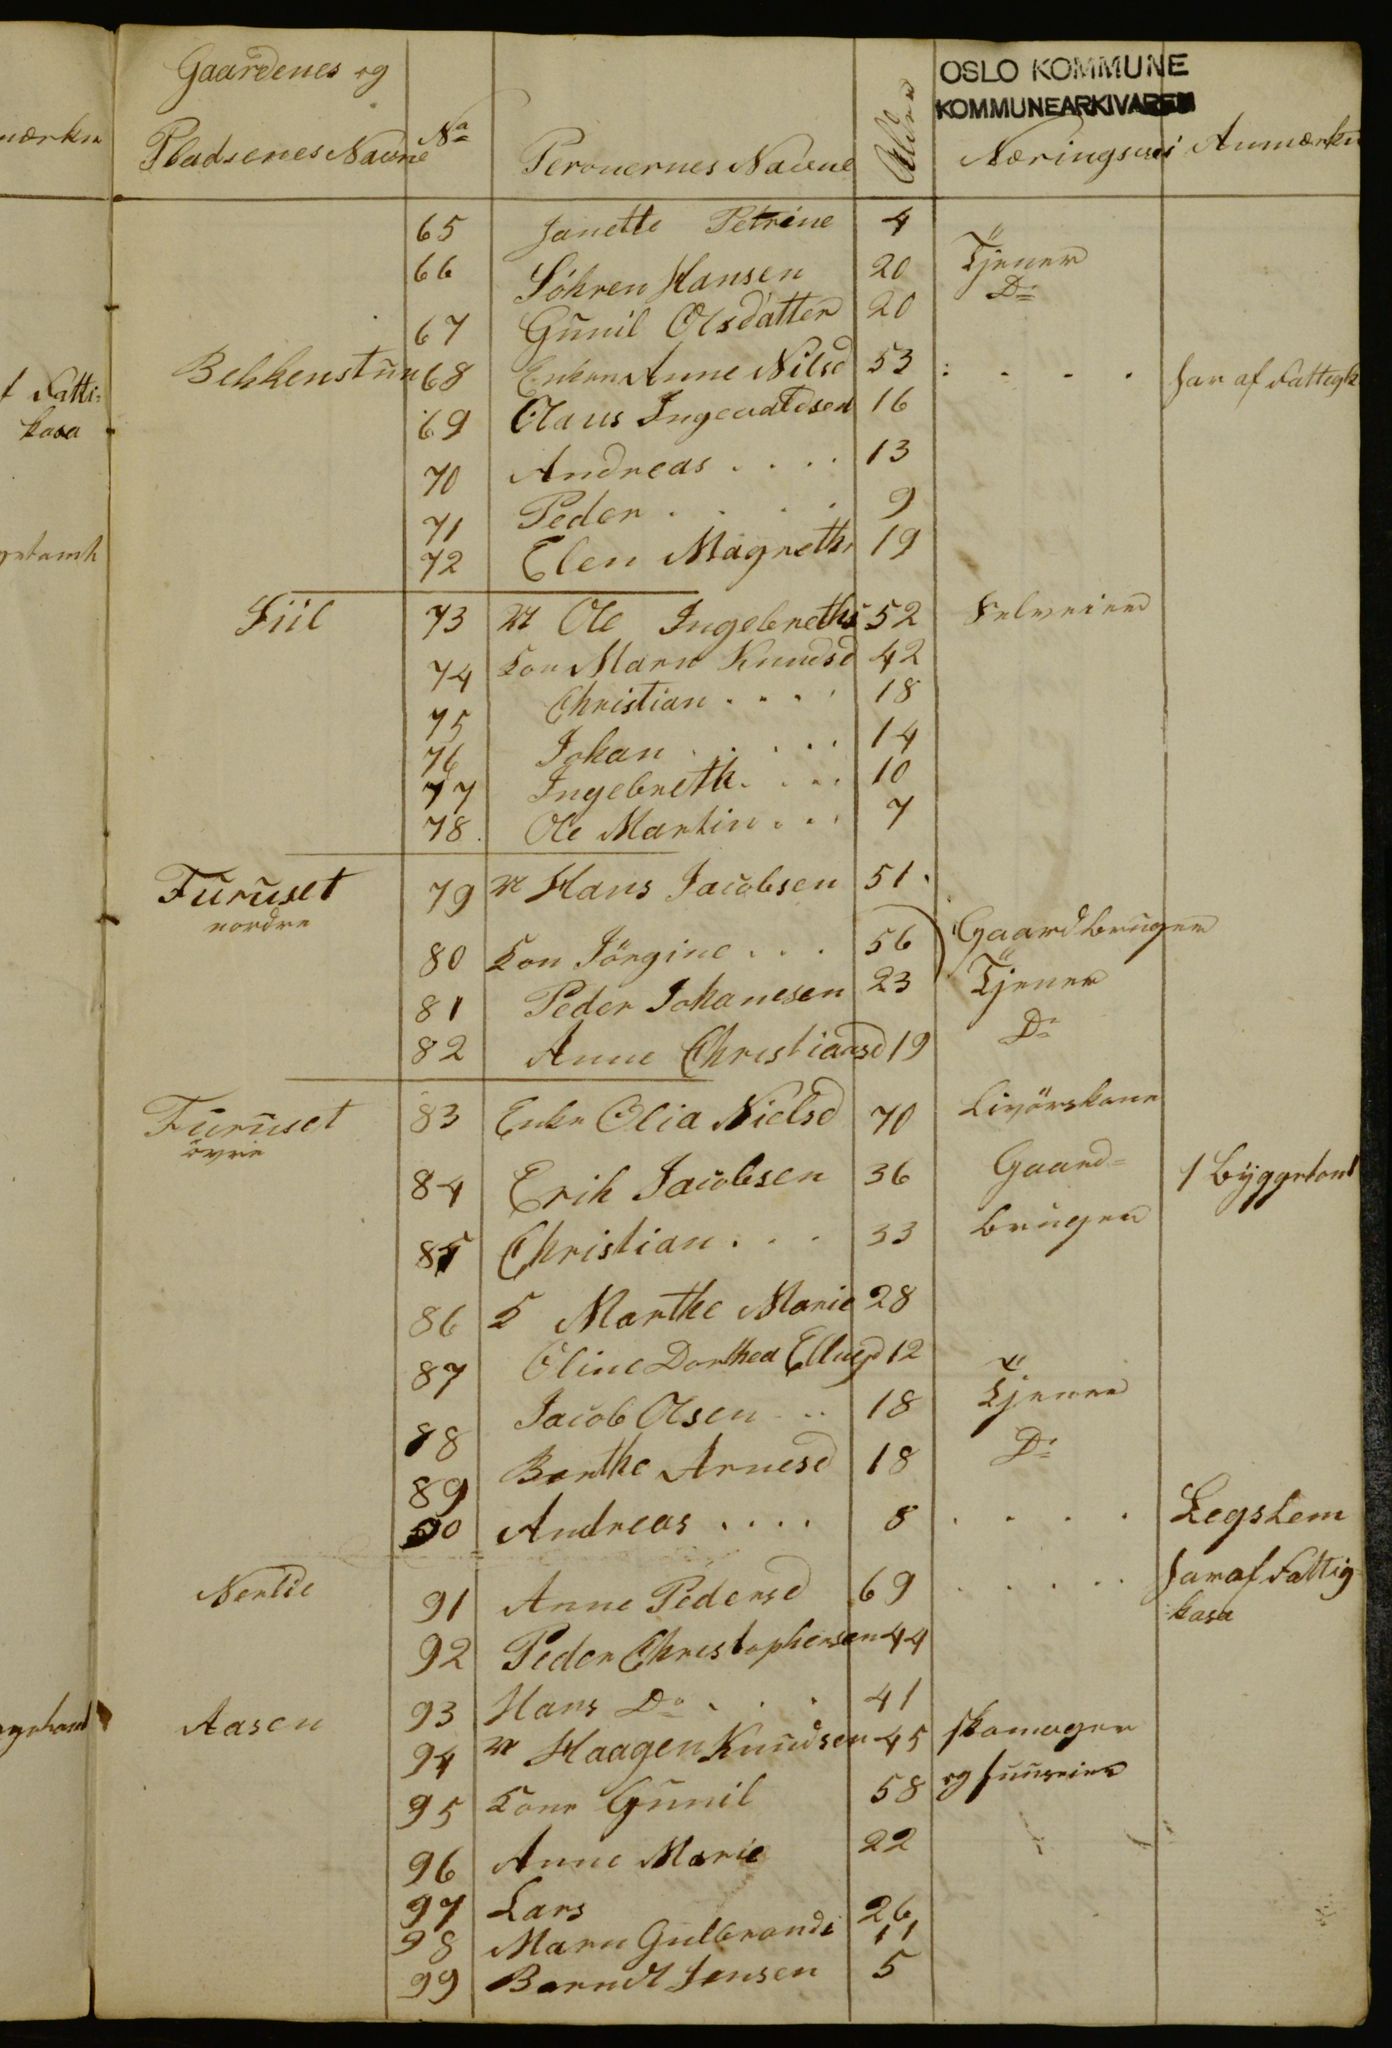 Gaardenes og
Pladsenes Navne No Personernes Navne Alder Næringsvei Anmærkn
OSLO KOMMUNE
KOMMUNEARKIVAREN
mærkn
65 Janette Petrine 4
66 Söhren Hansen 20 Tjener
67 Gunil Olsdatter 20 Do
Bekkenstun 68 Enken Anne Nilsd 53 . . . . har af Fattigk
f Fatti=
kasa
69 Olaus Ingevaldsen 16
70 Andreas . . . . 13
71 Peder . . . . 9
72 Elen Magrethe 19
Fiil 73 M Ole Ingebreths 52 Selveier
74 Kon Marn Knudsd 42
75 Christian . . . . 18
76 Johan . . . . 14
77 Ingebreth . . . . 10
78. Ole Martin . . . 7
Furuset 79 M Hans Jacobsen 51.
nordre
80 Kon Jörgine . . . 56 Gaardbruger
81 Peder Johanesen 23 Tjener
82 Anne Christiansd 19 Do
Furuset 83 Enke Olia Nielsd 70 Livörskone
övrie
84 Erik Jacobsen 36 Gaard= 1 Byggetont
85 Christian . . . 33 bruger
86 K Marthe Marie 28
87 Oline Dorthea 12
88 Jacob Olsen . . 18 Tjener
89 Berthe Arnesd 18 Do
90 Andreas . . . . 8 . . . . Legslem
Nerlie 91 Anne Pedersd 69 . . . . . har af Fattig
kasa
92 Peder Christophersen 44
93 Hans Do . . . 41
Aasen 94 M Haagen Knudsen 45 skomager
95 Kone Gunil 58 og huuseier
96 Anne Marie 22
97 Lars 26
98 Marn Gulbrands 11
99 Berndt Jensen 5